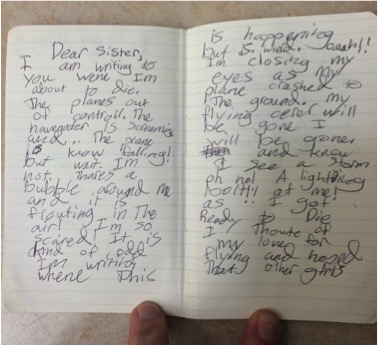 Dear Sister,
I am writing to
you were I'm
about to die.
The planes out
of controll. The
navegater is screaming
and... The plane
is know falling!
but wait. I'm
not. Thares a
bubble around me
and it is
flouting in The
air! I'm so
scared! It is
kind of odd
I'm writing
where this
is happening
but is. aaahh!
I'm closing my
eyes as my
plane crashed to
The ground. my
flying career will
be gone I
will be gone.
and know
I see a storm
oh no! A lightning
bolt!! at me!
as I got
Ready to Die
I Thoute of
my love for
flying and hoped
That other girls